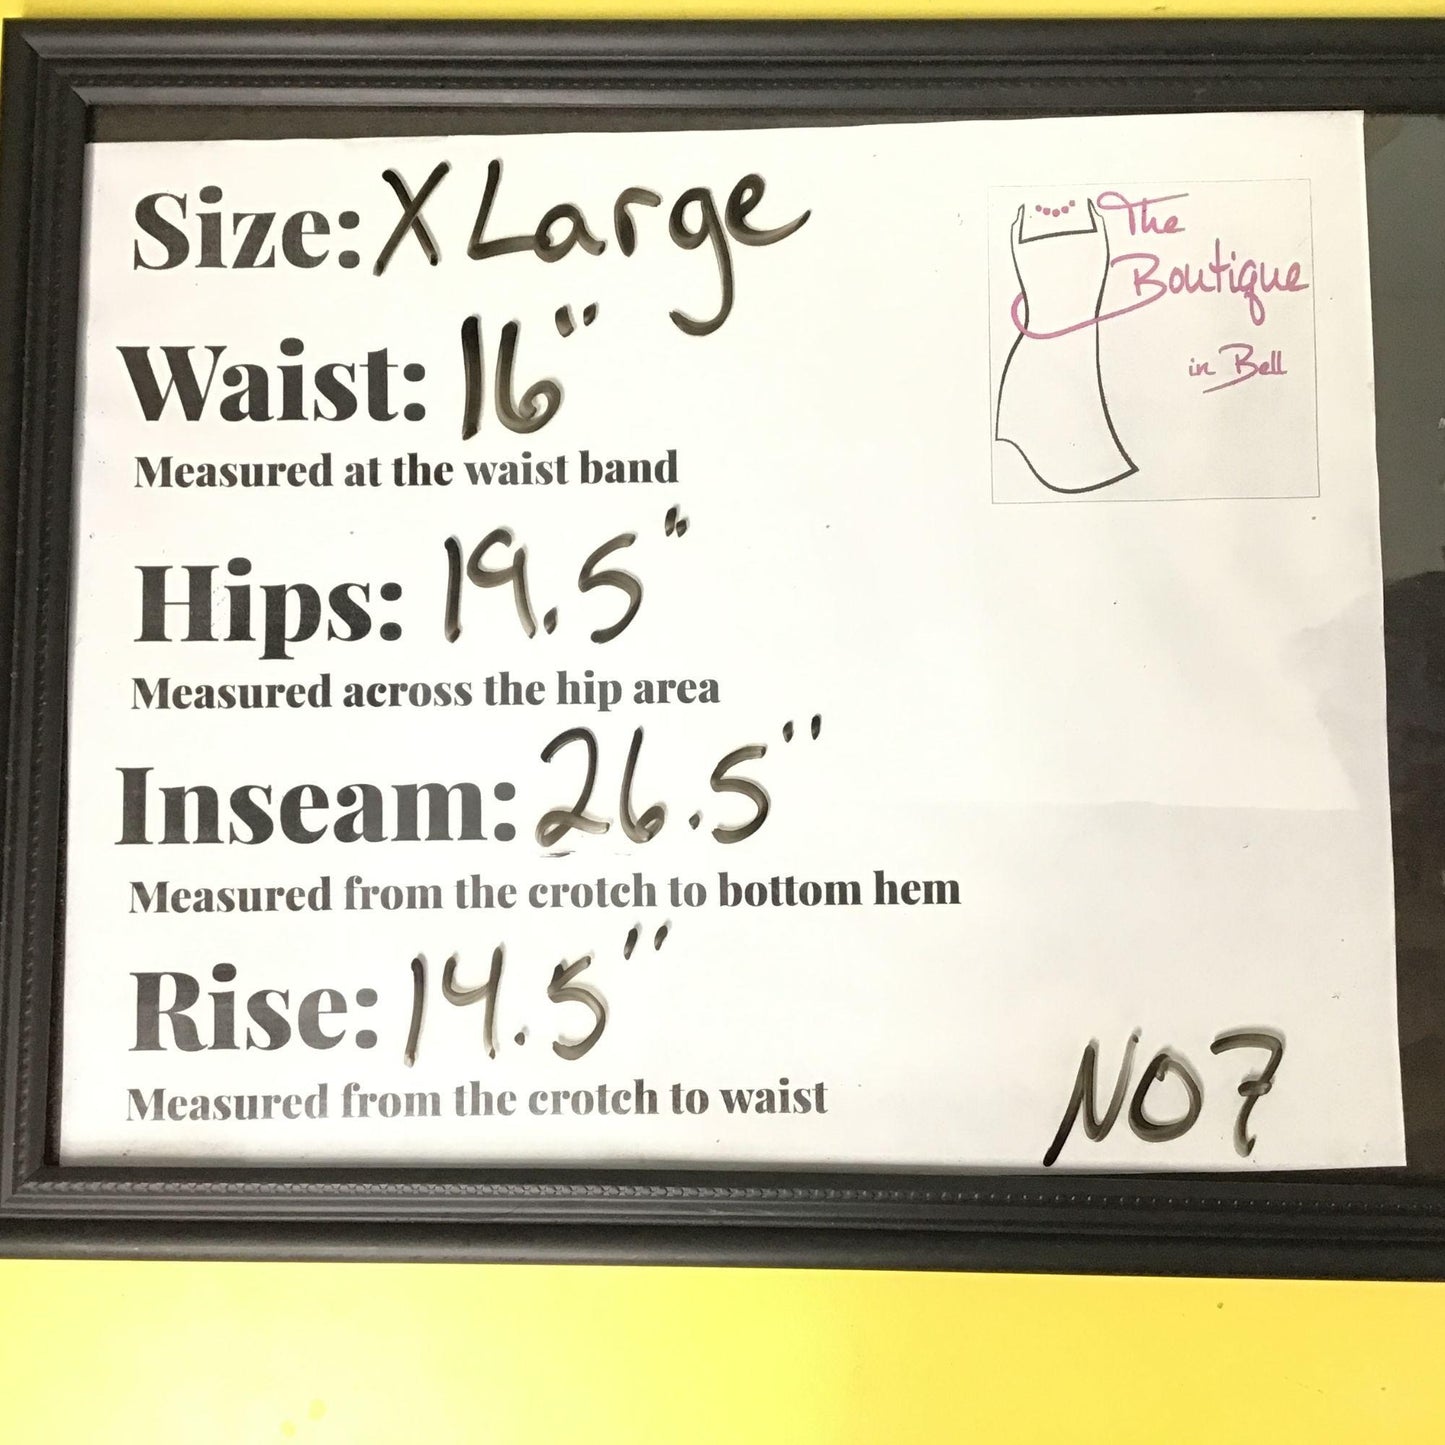 Size: XLarge
Waist: 16"
Measured at the waist band
Hips: 19.5"
Measured across the hip area
Inseam: 26.5"
Measured from the crotch to bottom hem
Rise: 14.5"
Measured from the crotch to waist
The
Boutique
in Bell
NO7